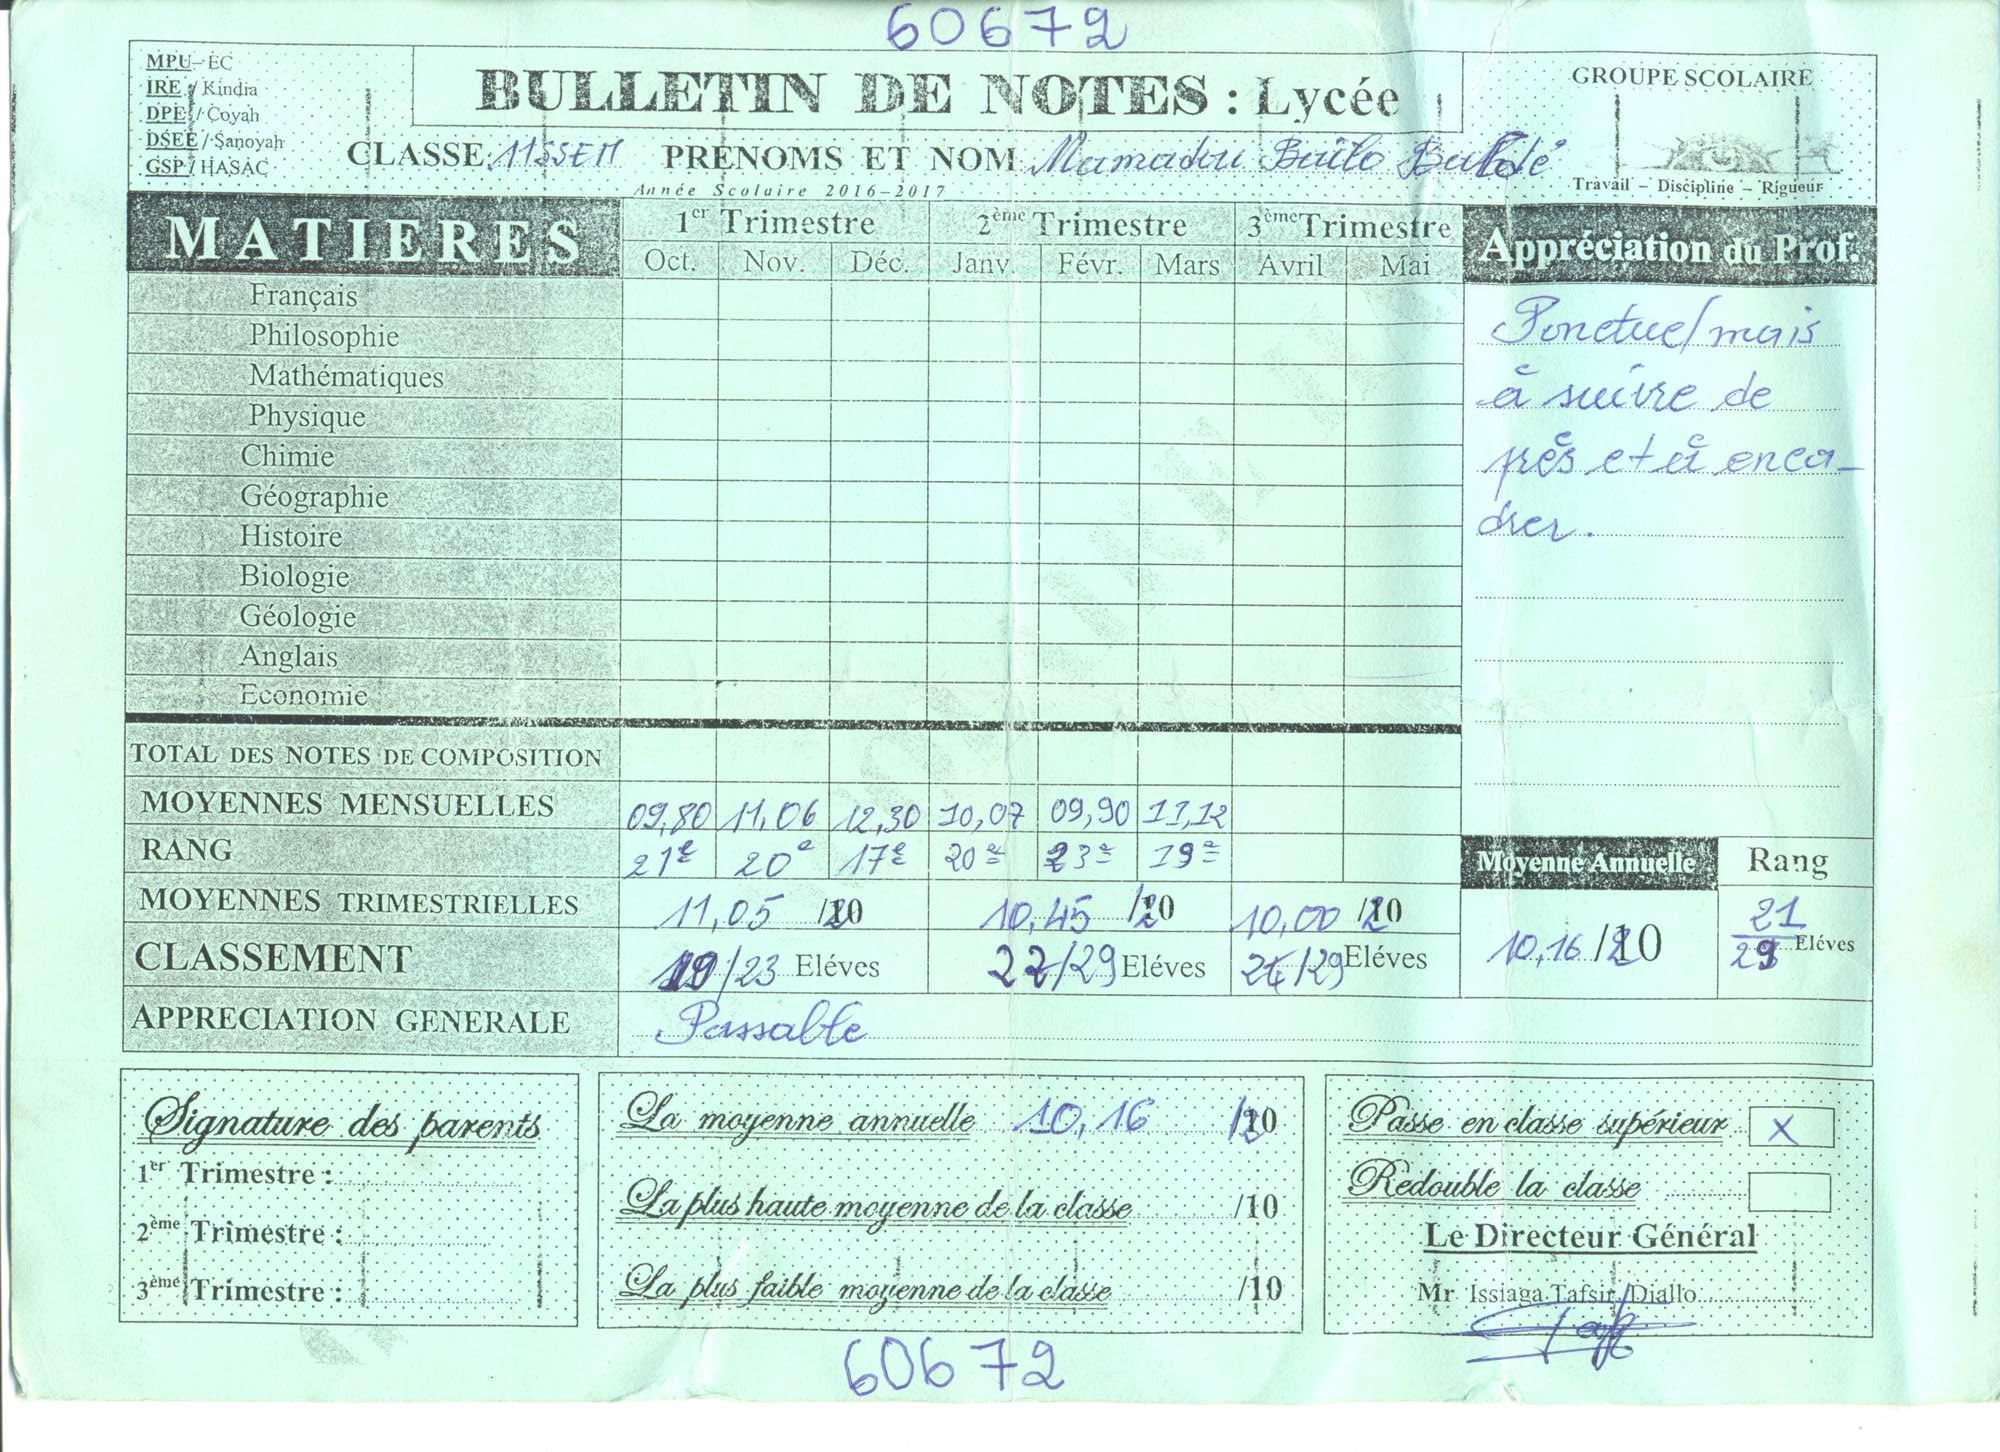 60672
MPU-EC
IRE / Kindia
DPE / Coyah
DSEE / Sanoyah
GSP / HASAC
BULLETIN DE NOTES : Lycée
GROUPE SCOLAIRE
Travail – Discipline – Rigueur
CLASSE 11SSEM PRENOMS ET NOM Mamadou Bailo Baldé
Année Scolaire 2016-2017
MATIERES 1er Trimestre 2ème Trimestre 3ème Trimestre Appréciation du Prof.
Oct. Nov. Déc. Janv. Févr. Mars Avril Mai
Français
Philosophie
Mathématiques
Physique
Chimie
Géographie
Histoire
Biologie
Géologie
Anglais
Economie
Ponctuel mais
à suivre de
près et à enca-
drer.
TOTAL DES NOTES DE COMPOSITION
MOYENNES MENSUELLES 09,80 11,06 12,30 10,07 09,90 11,12
RANG 21e 20e 17e 20e 23e 19e
MOYENNES TRIMESTRIELLES 11,05 /20 10,45 /20 10,00 /20
CLASSEMENT 19/23 Eléves 22/29 Eléves /29 Eléves
Moyenne Annuelle Rang
10,16 /20 21
29 Eléves
APPRECIATION GENERALE Passable
Signature des parents
1er Trimestre :
2ème Trimestre :
3ème Trimestre :
La moyenne annuelle 10,16 /20
La plus haute moyenne de la classe /10
La plus faible moyenne de la classe /10
Passe en classe supérieur X
Redouble la classe
Le Directeur Général
Mr Issiaga Tafsir Diallo
60672